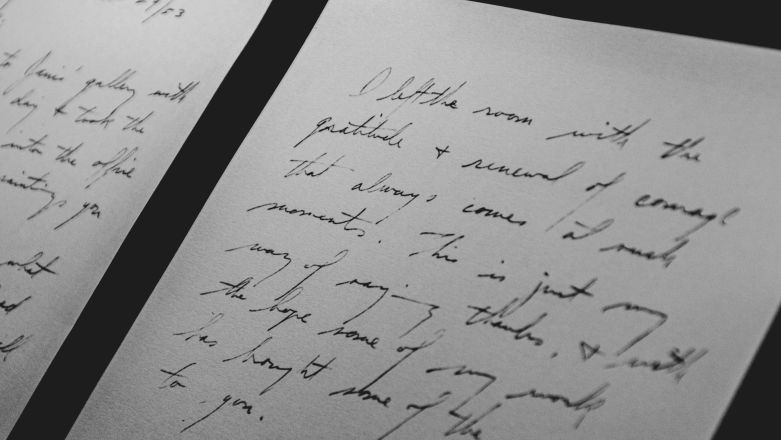 /53
to Janis' gallery with
day & took the
into the office
paintings you
what
I left the room with the
gratitude & renewal of courage
that always comes at such
moments. This is just my
way of saying thanks, & with
the hope some of my work
has brought some of the
to you.